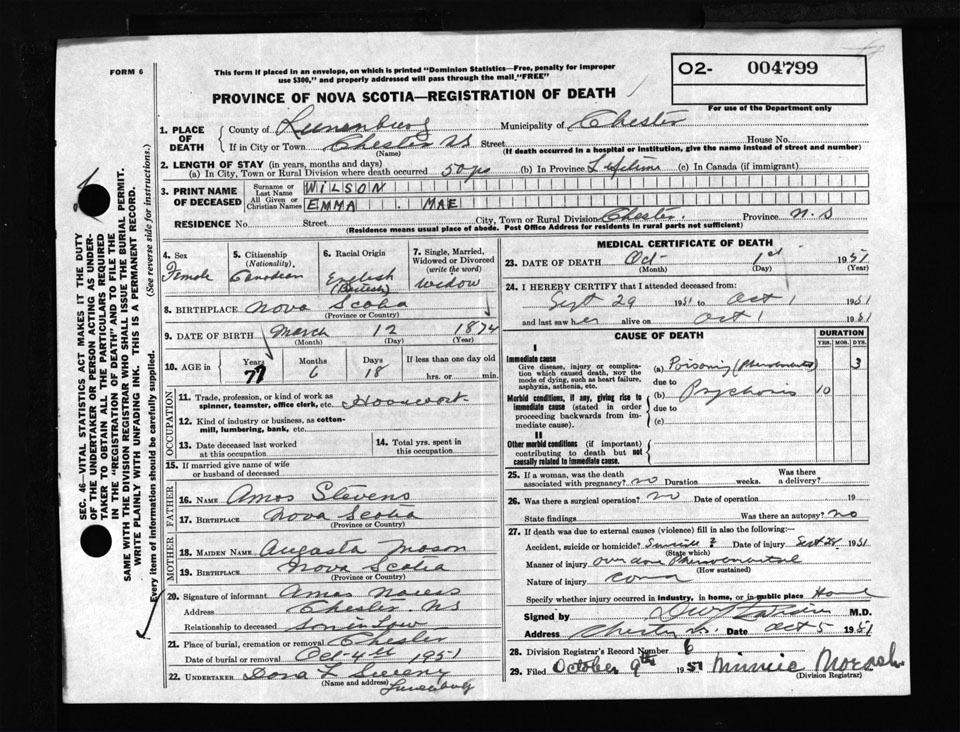 FORM 6
This form if placed in an envelope, on which is printed "Dominion Statistics—Free, penalty for improper
use $300," and properly addressed will pass through the mail, "FREE"
O2- 004799
For use of the Department only
PROVINCE OF NOVA SCOTIA—REGISTRATION OF DEATH
SEC. 46—VITAL STATISTICS ACT MAKES IT THE DUTY
OF THE UNDERTAKER OR PERSON ACTING AS UNDER-
TAKER TO OBTAIN ALL THE PARTICULARS REQUIRED
IN THE "REGISTRATION OF DEATH" AND TO FILE THE
SAME WITH THE DIVISION REGISTRAR WHO SHALL ISSUE THE BURIAL PERMIT.
WRITE PLAINLY WITH UNFADING INK. THIS IS A PERMANENT RECORD.
Every item of information should be carefully supplied. (See reverse side for instructions.)
1. PLACE OF DEATH County of Lunenburg Municipality of Chester
If in City or Town Chester NS Street House No.
(Name) (If death occurred in a hospital or institution, give the name instead of street and number)
2. LENGTH OF STAY (in years, months and days)
(a) In City, Town or Rural Division where death occurred 50 yrs (b) In Province Lifetime (c) In Canada (if immigrant)
3. PRINT NAME OF DECEASED Surname or Last Name WILSON
All Given or Christian Names EMMA . MAE
RESIDENCE No. Street City, Town or Rural Division Chester. Province N.S
(Residence means usual place of abode. Post Office Address for residents in rural parts not sufficient)
4. Sex Female
5. Citizenship (Nationality) Canadian
6. Racial Origin English (British)
7. Single, Married, Widowed or Divorced (write the word) Widow
8. BIRTHPLACE Nova Scotia
(Province or Country)
9. DATE OF BIRTH March 12 1874
(Month) (Day) (Year)
10. AGE in Years 77 Months 6 Days 18 If less than one day old
hrs. or min.
OCCUPATION
11. Trade, profession, or kind of work as
spinner, teamster, office clerk, etc. Housework
12. Kind of industry or business, as cotton-
mill, lumbering, bank, etc.
13. Date deceased last worked
at this occupation
14. Total yrs. spent in
this occupation
15. If married give name of wife
or husband of deceased
FATHER
16. NAME Amos Stevens
17. BIRTHPLACE Nova Scotia
(Province or Country)
MOTHER
18. MAIDEN NAME Augasta Mason
19. BIRTHPLACE Nova Scotia
(Province or Country)
20. Signature of informant Amos
Address Chester. NS
Relationship to deceased Son in Law
21. Place of burial, cremation or removal Chester
Date of burial or removal Oct-4th 1951
22. UNDERTAKER Dora L Sweeny
(Name and address) Lunenburg
MEDICAL CERTIFICATE OF DEATH
23. DATE OF DEATH Oct- 1st 1951
(Month) (Day) (Year)
24. I HEREBY CERTIFY that I attended deceased from:
Sept 29 1951 to Oct 1 1951
and last saw her alive on Oct 1 1951
CAUSE OF DEATH
DURATION
YRS. MOS. DYS.
I
Immediate cause
Give disease, injury or complica-
tion which caused death, not the
mode of dying, such as heart failure,
asphyxia, asthenia, etc.
(a) Poisoning 3
due to
Morbid conditions, if any, giving rise to
immediate cause (stated in order
proceeding backwards from im-
mediate cause).
(b) Psychosis 10
due to
(c)
II
Other morbid conditions (if important)
contributing to death but not
causally related to immediate cause.
25. If a woman, was the death
associated with pregnancy? no Duration weeks. Was there
a delivery?
26. Was there a surgical operation? no Date of operation 19
State findings Was there an autopsy? no
27. If death was due to external causes (violence) fill in also the following:—
Accident, suicide or homicide? Suicide ? Date of injury Sept 28, 1951
(State which)
Manner of injury overdose Phenobarbital
(How sustained)
Nature of injury coma
Specify whether injury occurred in industry, in home, or in public place Home
Signed by M.D.
Address Chester NS. Date Oct 5 1951
28. Division Registrar's Record Number 6
29. Filed October 9th 1951 Minnie Morash
(Division Registrar)